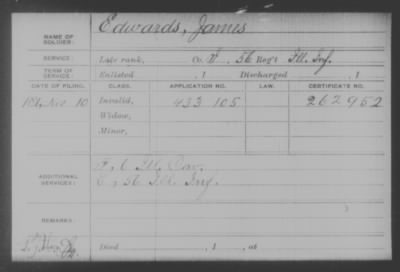 NAME OF SOLDIER: Edwards, James
SERVICE: Late rank, Co. 56 Reg't Ill. Inf.
TERM OF SERVICE: Enlisted , 1 Discharged , 1
DATE OF FILING. CLASS. APPLICATION NO. LAW. CERTIFICATE NO.
10 Invalid, 433 105 262 952
Widow,
Minor,
ADDITIONAL SERVICES: Ill. Cav.
56 Ill. Inf.
REMARKS:
Died , 1 , at